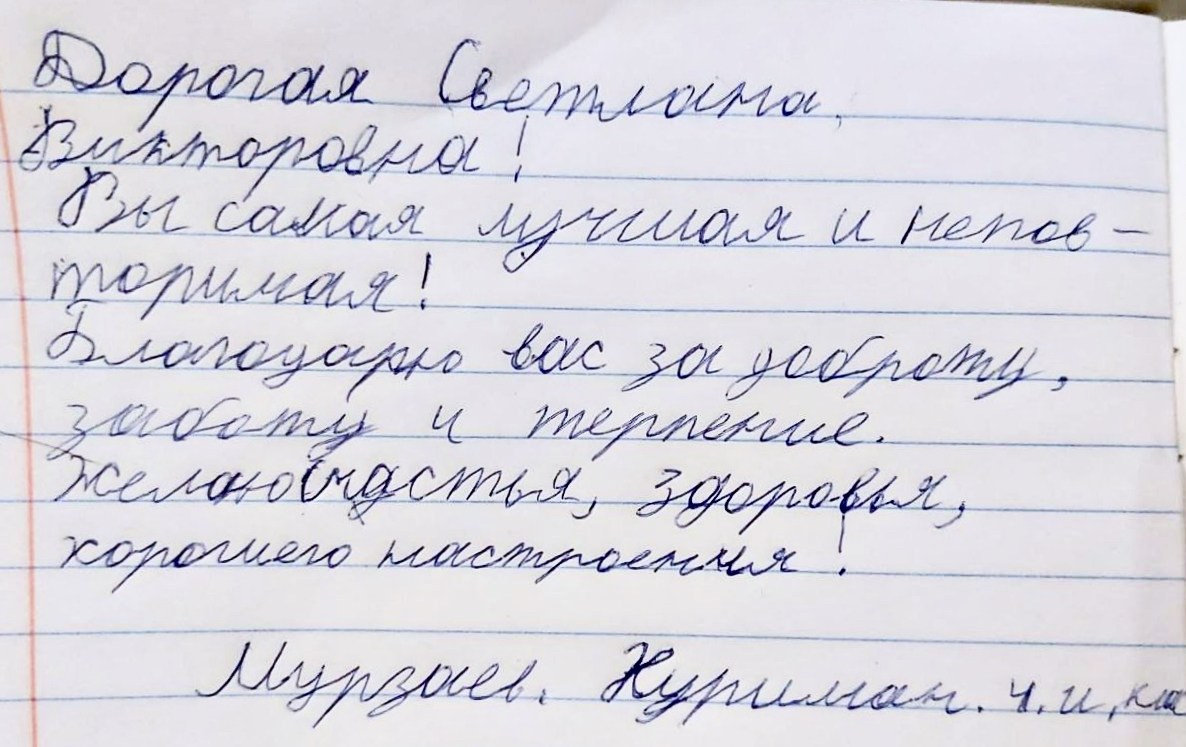 Дорогая Светлана,
Викторовна!
Вы самая лучшая и непов-
торимая!
Благодарю вас за доброту,
заботу и терпение.
Желаю счастья, здоровья,
хорошего настроения!
Мурзаев. Нуриман. ч.и,